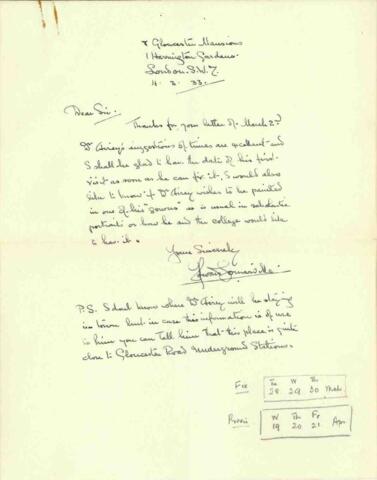 Gloucester Mansions
1 Harrington Gardens
London. S.W.7.
4. 3. 33.
Dear Sir.
Thanks for your letter of March 2nd
Dr Airey's suggestions of times are excellent and
I shall be glad to have the date of his first
visit as soon as he can fix it. I would also
like to know if Dr Airey wishes to be painted
in one of his "gowns" as is usual in scholastic
portraits or how he and the college would like
to have it.
Yours Sincerely
Howard Somerville
P.S. I don't know where Dr Airey will be staying
in town but in case this information is of use
to him you can tell him that this place is quite
close to Gloucester Road Underground Station.
Tu W Th
28 29 30 Mch
W Th Fr
19 20 21 Apr.